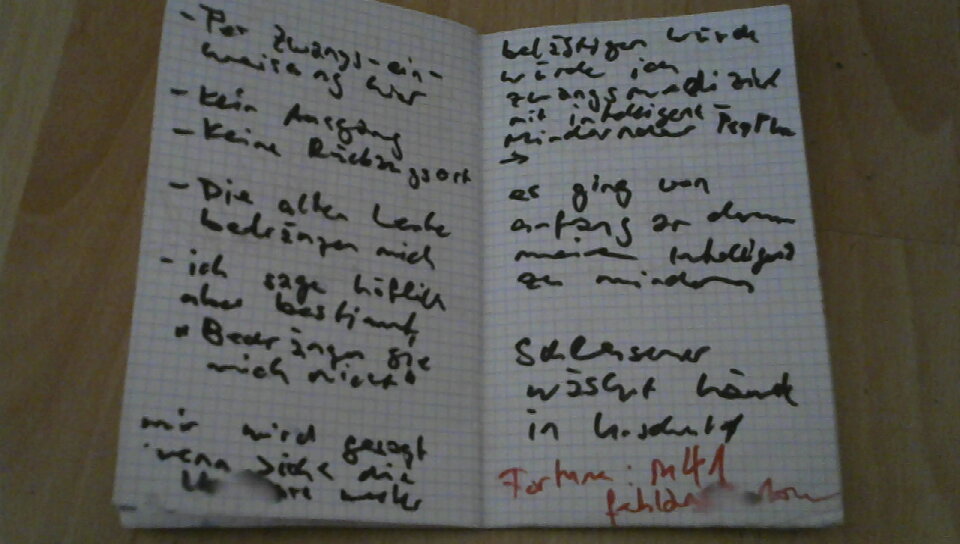 - Per Zwangs-ein-
weisung hier
- Kein Ausgang
- Keine Rückzugsort
- Die alten Leute
bedrängen mich
- ich sage höflich
aber bestimmt,
"Bedrängen sie
mich nicht"
mir wird gesagt
wenn ich die
weiter
belästigen würde
würde ich
zwangsmedizirt
mit intelligenz
mindernder
→
es ging von
anfang an darum
meine Intelligenz
zu mindern
wäscht hände
in
Fortuna: